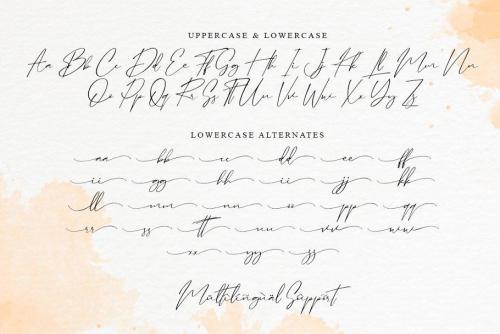 UPPERCASE & LOWERCASE
Aa Bb Cc Dd Ee Ff Gg Hh Ii Jj Kk Ll Mm Nn
Oo Pp Qq Rr Ss Tt Uu Vv Ww Xx Yy Zz
LOWERCASE ALTERNATES
aa bb cc dd ee ff
ii gg hh ii jj kk
ll mm nn oo pp qq
rr ss tt uu vv ww
xx yy zz
Multilingual Support